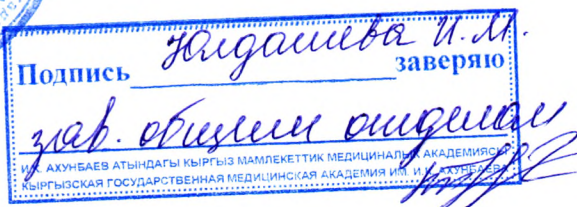 Подпись Юлдашева И.М. заверяю
зав. общим отделом
И.К. АХУНБАЕВ АТЫНДАГЫ КЫРГЫЗ МАМЛЕКЕТТИК МЕДИЦИНАЛЫК АКАДЕМИЯСЫ
КЫРГЫЗСКАЯ ГОСУДАРСТВЕННАЯ МЕДИЦИНСКАЯ АКАДЕМИЯ ИМ. И.К. АХУНБАЕВА